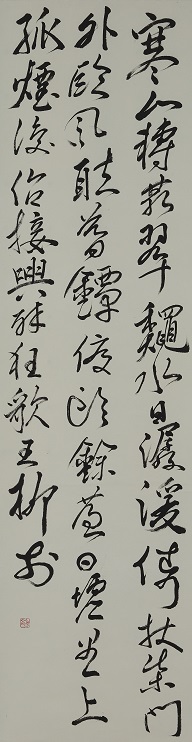 寒山轉蒼翠龝水日潺湲倚杖柴門
外臨風聽暮蟬渡頭餘落日墟里上
孤煙復值接輿醉狂歌五柳前